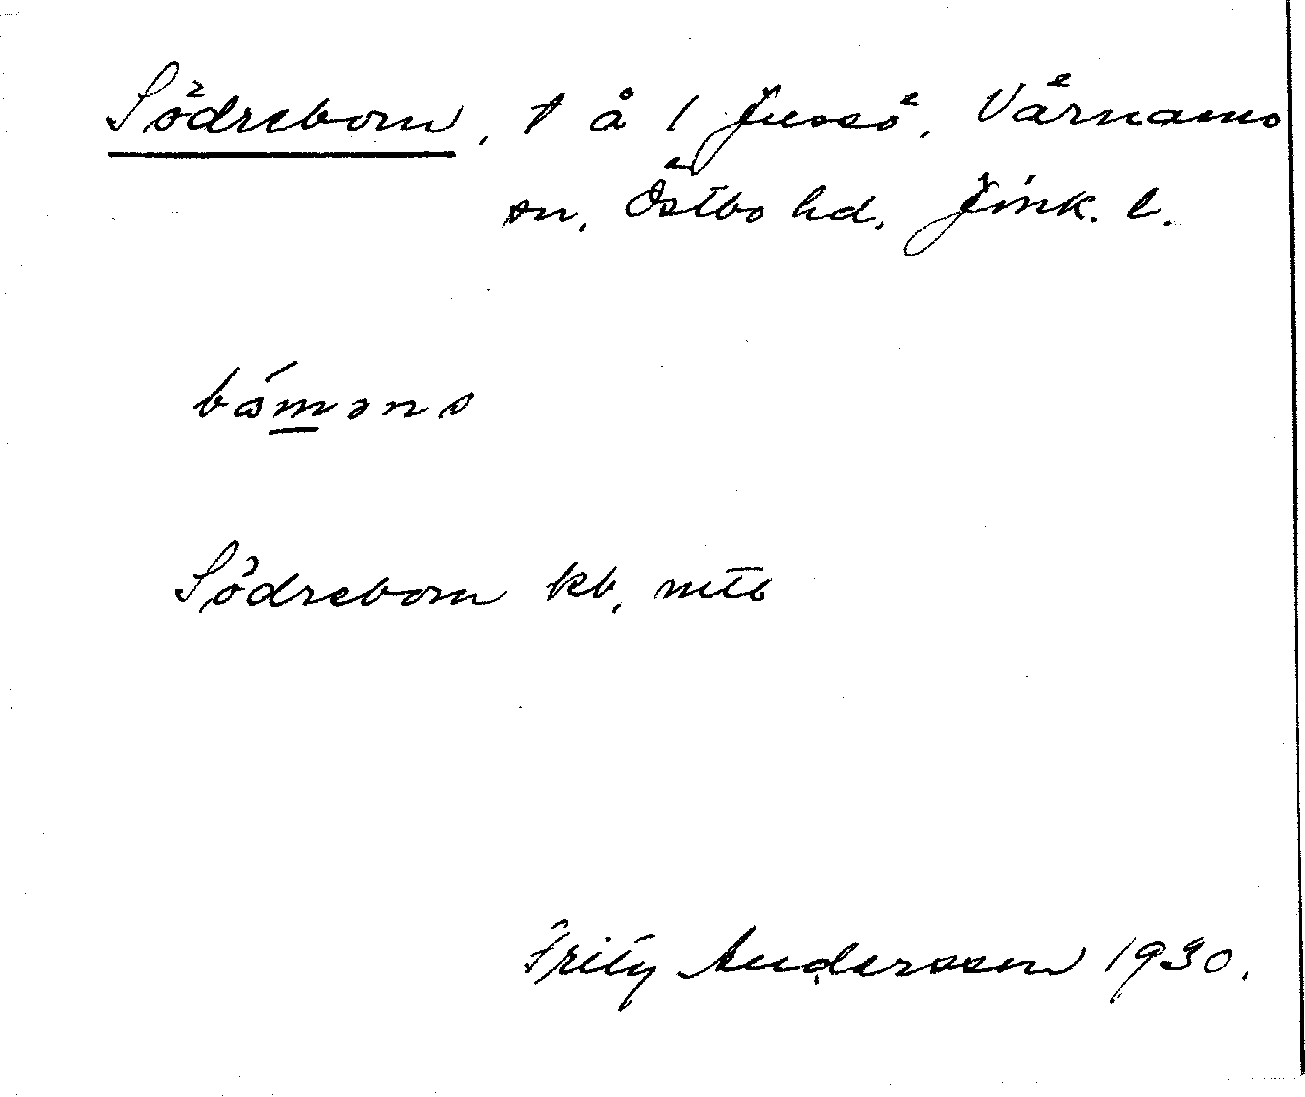 Södrebom, t å l Jussö, Värnamo
sn, Östbo hd, Jönk. l.
bómǝns
Södrebom kb, mtb
Frity Andersson 1930.